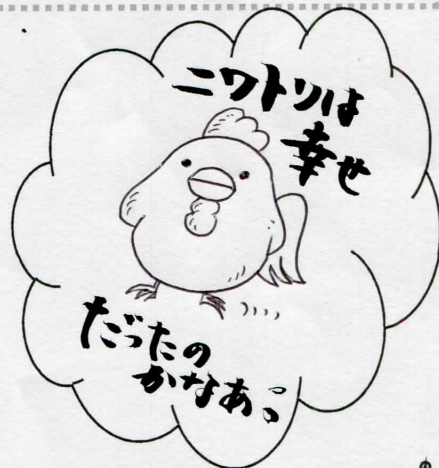 ニワトリは
幸せ
だったの
かなあ。